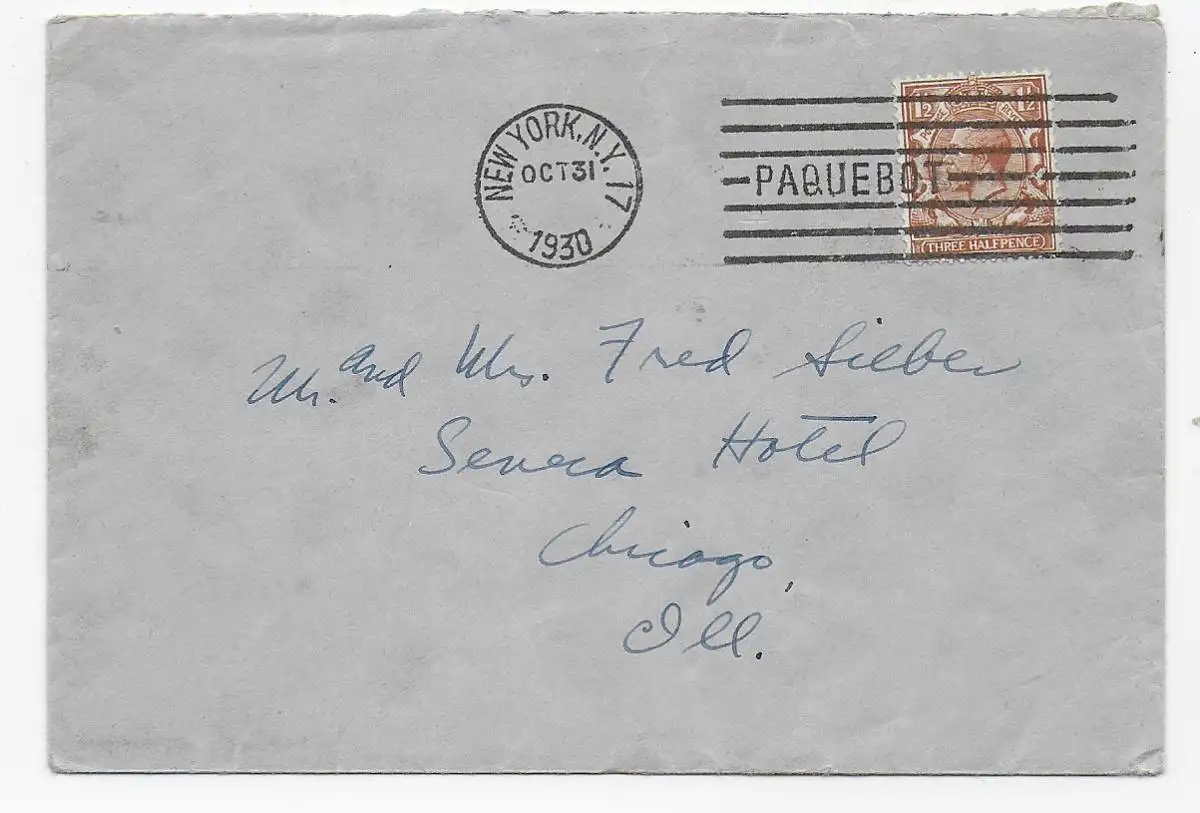 NEW YORK, N.Y. 17
OCT 31
1930
PAQUEBOT
1½ 1½
THREE HALFPENCE
Mr. and Mrs. Fred Sieber
Seneca Hotel
Chicago,
Ill.